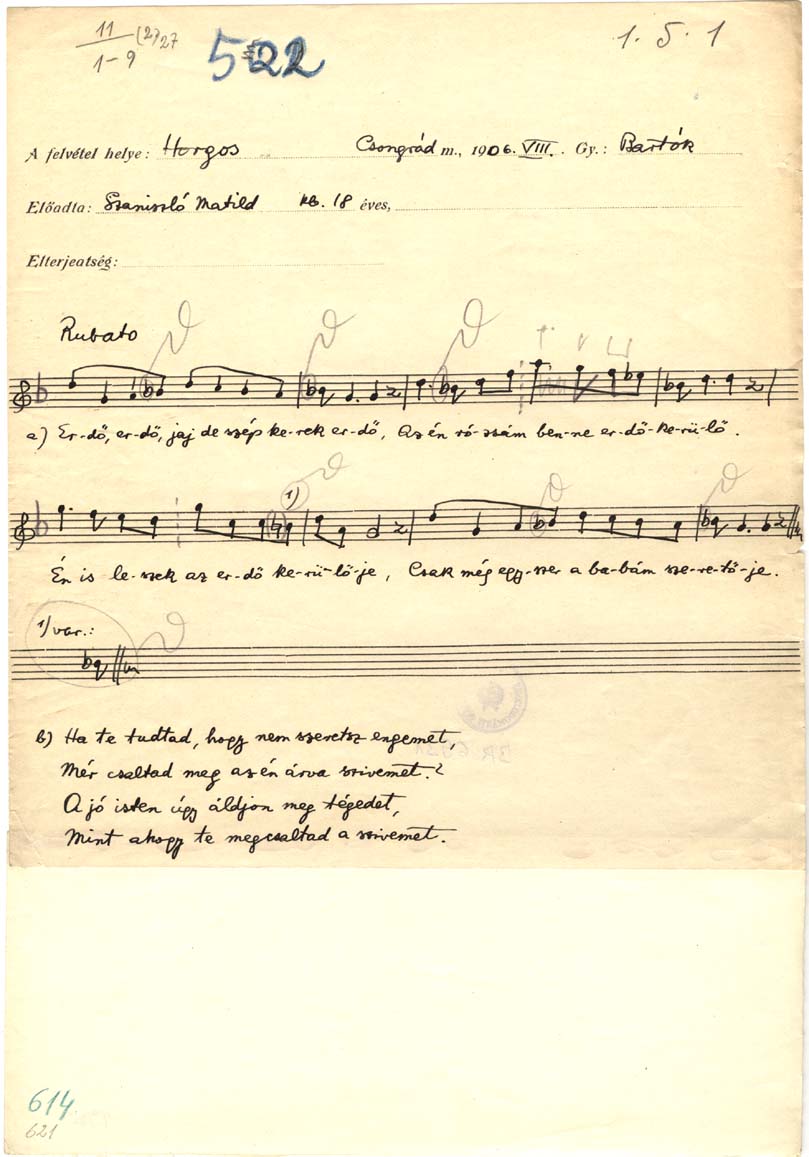 11 (27) 27
1-9
522
1. 5. 1
A felvétel helye: Horgos Csongrád m., 1906. VIII. Gy.: Bartók
Előadta: Szaniszló Matild kb. 18 éves,
Elterjeatség:
Rubato
a) Er-dő, er-dő, jaj de szép ke-rek er-dő, Az én ró-zsám ben-ne er-dő-ke-rü-lő.
1)
Én is le-szek az er-dő ke-rü-lő-je, Csak még egy-szer a ba-bám sze-re-tő-je.
1) var.:
b) Ha te tudtad, hogy nem szeretsz engemet,
Mér csaltad meg az én árva szivemet?
A jó isten úgy áldjon meg tégedet,
Mint ahogy te megcsaltad a szivemet.
614
621